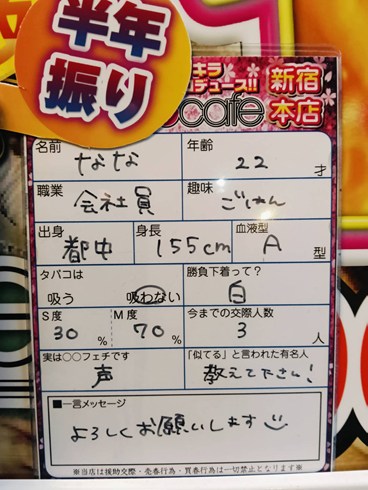 半年
振り
キラ
デュース!!
café
新宿
本店
名前 年齢
なな 22 才
職業 趣味
会社員 ごはん
出身 身長 血液型
都中 155cm A 型
タバコは 勝負下着って?
吸う 吸わない 白
S度 M度 今までの交際人数
30 % 70 % 3 人
実は○○フェチです 「似てる」と言われた有名人
声 教えて下さい!
■一言メッセージ
よろしくお願いします
※当店は援助交際・売春行為・買春行為は一切禁止となります※